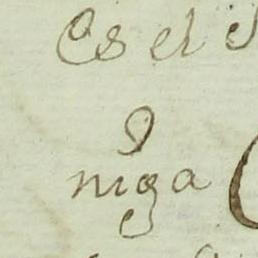 Es el
niga